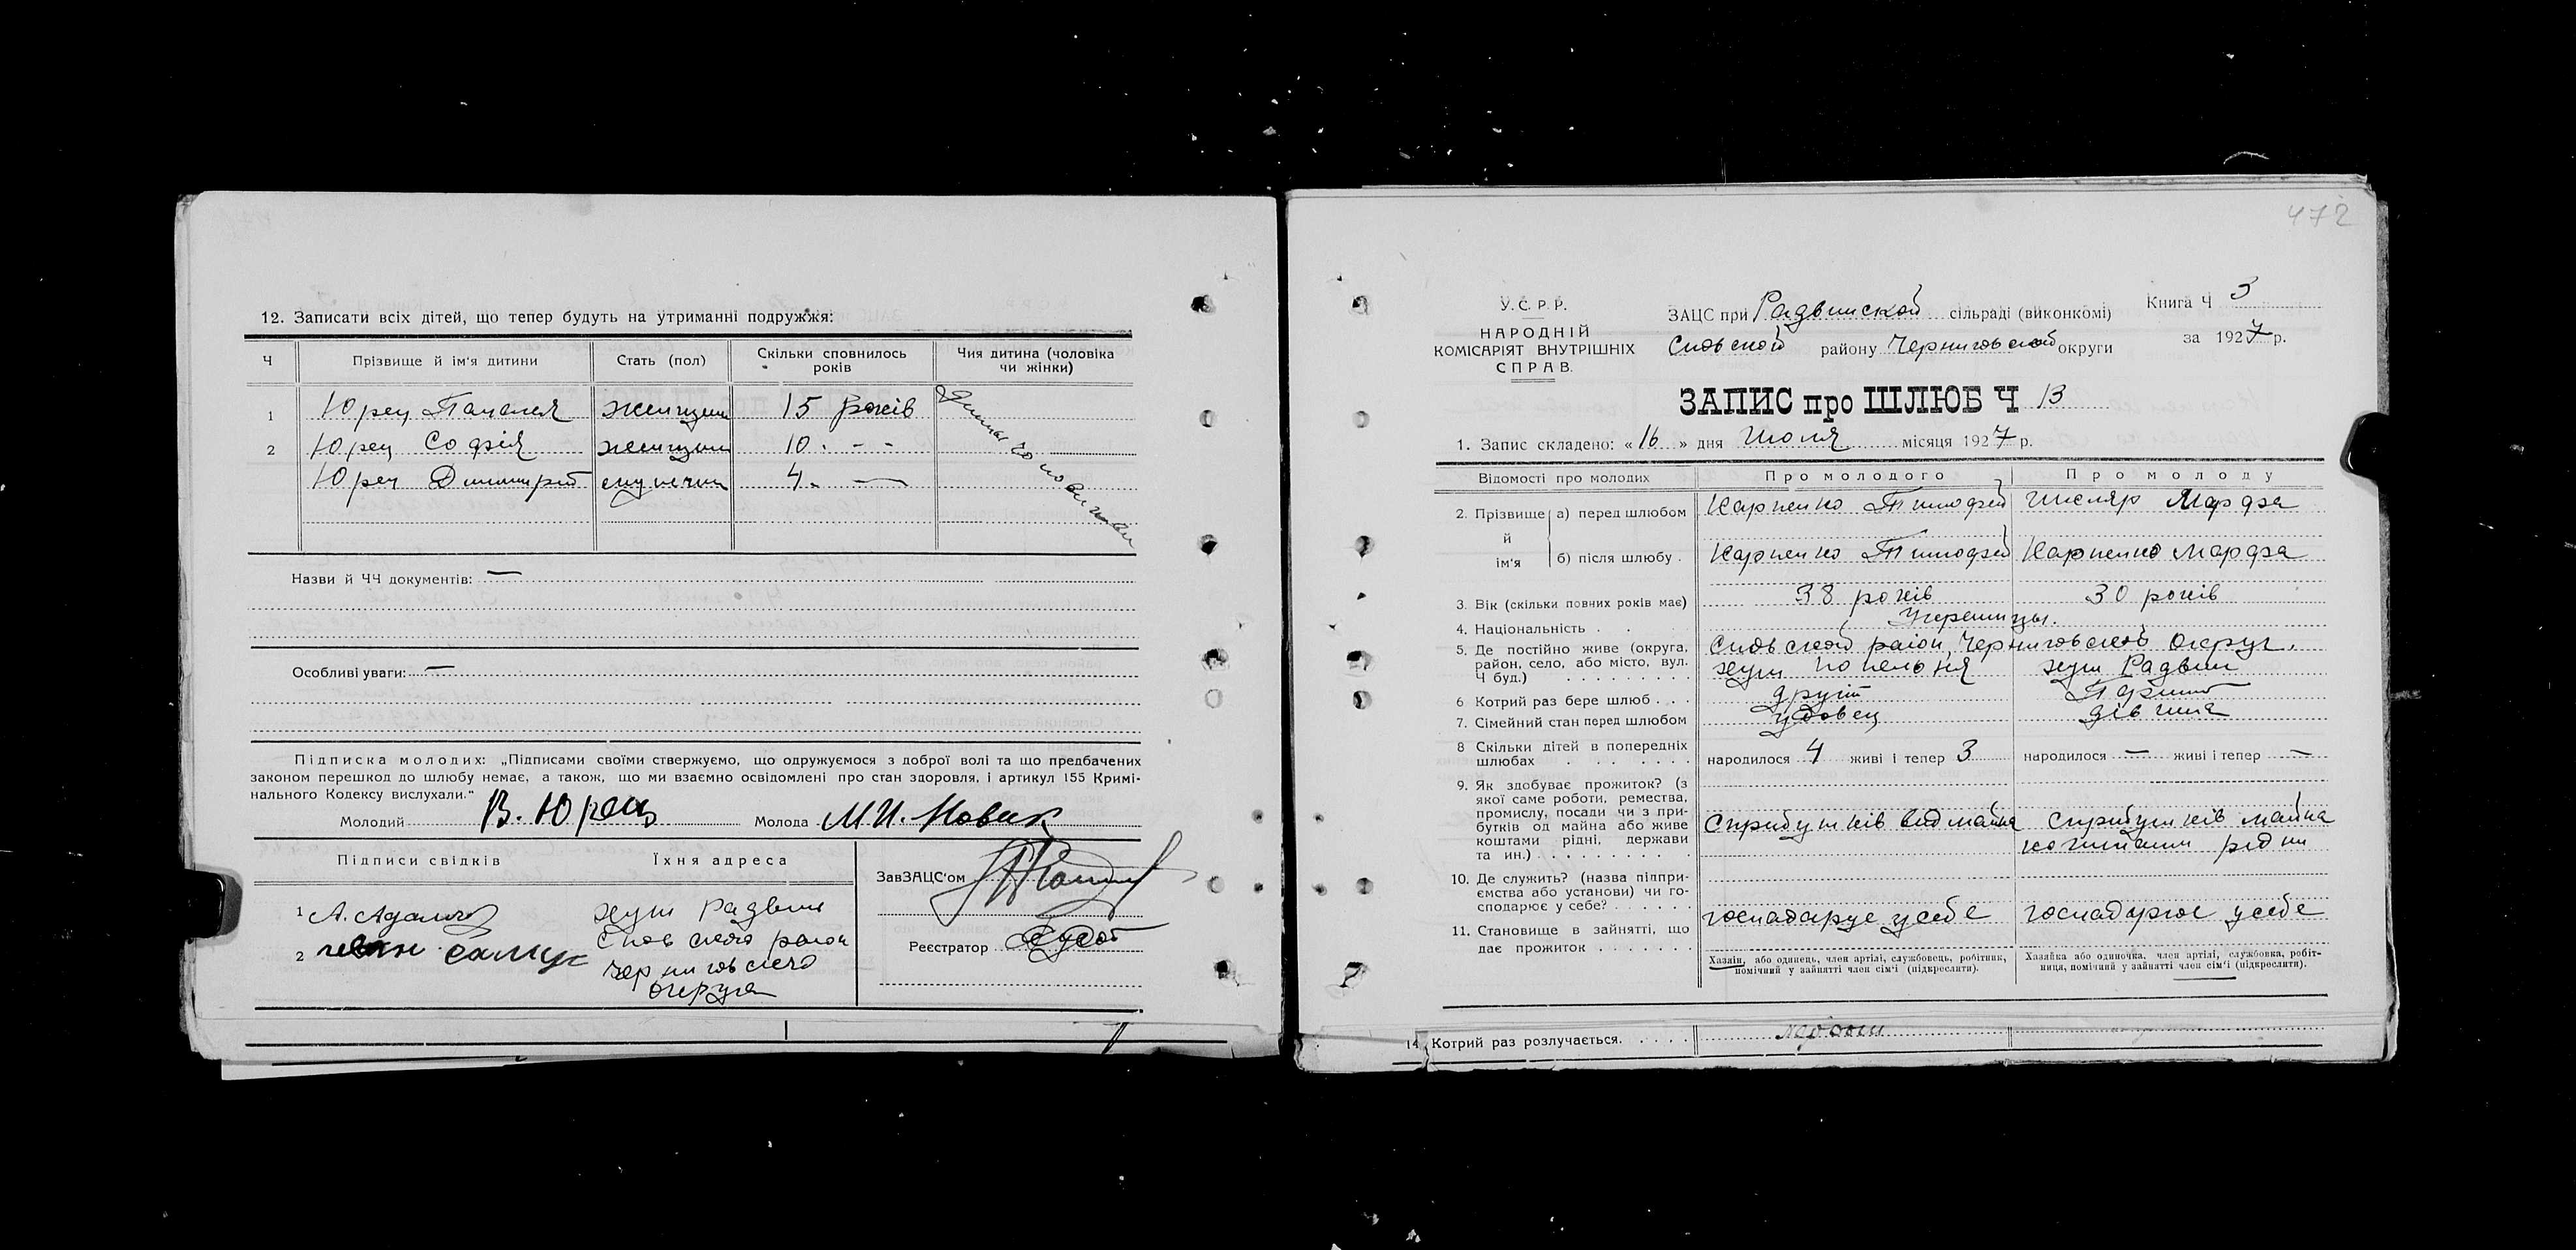 12. Записати всіх дітей, що тепер будуть на утриманні подружжя:
Ч Прізвище й ім'я дитини Стать (пол) Скільки сповнилось років Чия дитина (чоловіка чи жінки)
1 Юрец женщин 15 років
2 Юрец Софія женщин 10. - -
Юрец Димитрій мущин 4. —
Назви й ЧЧ документів: —
Особливі уваги: —
Підписка молодих: „Підписами своїми стверджуємо, що одружуємося з доброї волі та що предбачених
законом перешкод до шлюбу немає, а також, що ми взаємно освідомлені про стан здоровля, і артикул 155 Кримі-
нального Кодексу вислухали."
Молодий В. Юрец Молода М.И. Новик
Підписи свідків Їхня адреса
ЗавЗАЦС'ом
1 А. хут Радвин
Сновского район
2 Черниговского
округа
Реєстратор
472
У.С.Р.Р.
НАРОДНІЙ
КОМІСАРІЯТ ВНУТРІШНІХ
СПРАВ.
ЗАЦС при Радвинской сільраді (виконкомі)
Сновской району Черниговской округи
Книга Ч 3
за 1927 р.
ЗАПИС про ШЛЮБ Ч 13
1. Запис складено: «16» дня Июля місяця 1927 р.
Відомості про молодих Про молодого Про молоду
2. Прізвище й ім'я а) перед шлюбом Карпенко Тимофей Марфа
б) після шлюбу . Карпенко Тимофей Карпенко Марфа
3. Вік (скільки повних років має) 38 років 30 років
4. Національність . . Украинцы.
5. Де постійно живе (округа, район, село, або місто, вул. Ч буд.) Сновской район, Черниговской округ.
хут хут Радвин
6 Котрий раз бере шлюб . . . другий Первий
7. Сімейний стан перед шлюбом удовец дівчина
8 Скільки дітей в попередніх шлюбах народилося 4 живі і тепер 3 народилося — живі і тепер —
9. Як здобуває прожиток? (з якої саме роботи, ремества, промислу, посади чи з прибутків од майна або живе коштами рідні, держави та ин.)
Сприбутків від майна Сприбутків майна
рідни
10. Де служить? (назва підприємства або установи) чи господарює у себе?
господарує усебе господарює усебе
11. Становище в зайнятті, що дає прожиток
Хазяїн, або одинець, член артілі, службовець, робітник, помічний у зайнятті член сім'ї (підкреслити).
Хазяйка або одиночка, член артілі, службовка, робітниця, помічний у зайнятті член сім'ї (підкреслити).
14 Котрий раз розлучається.